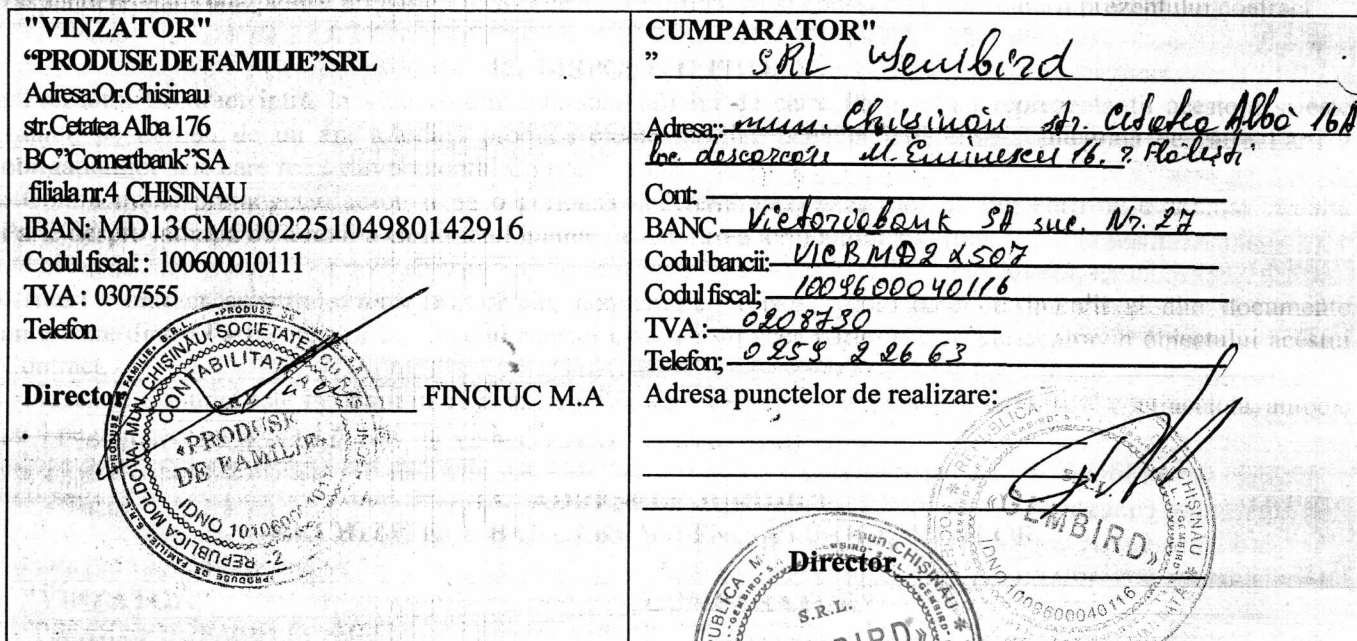 prezentului contract
"VINZATOR"
“PRODUSE DE FAMILIE”SRL
Adresa:Or.Chisinau
str.Cetatea Alba 176
BC”Comertbank”SA
filiala nr.4 CHISINAU
IBAN: MD13CM000225104980142916
Codul fiscal: : 100600010111
TVA : 0307555
Telefon
Director FINCIUC M.A
REPUBLICA MOLDOVA, MUN. CHISINAU, SOCIETATE CU
CONTABILITATE
«PRODUSE
DE FAMILIE»
IDNO 101060
CUMPARATOR"
” SRL Gembird
Adresa;: mun. Chișinău str. Cetatea Albă 16A
loc. descărcare M. Eminescu 16. Florești
Cont:
BANC Victoriabank SA suc. Nr. 27
Codul bancii: VICBMD2X507
Codul fiscal; 1009600040116
TVA: 0208730
Telefon; 0259 22663
Adresa punctelor de realizare:
CHISINAU
«GEMBIRD»
IDNO 1009600040116
Director
mun. CHISINAU
S.R.L.